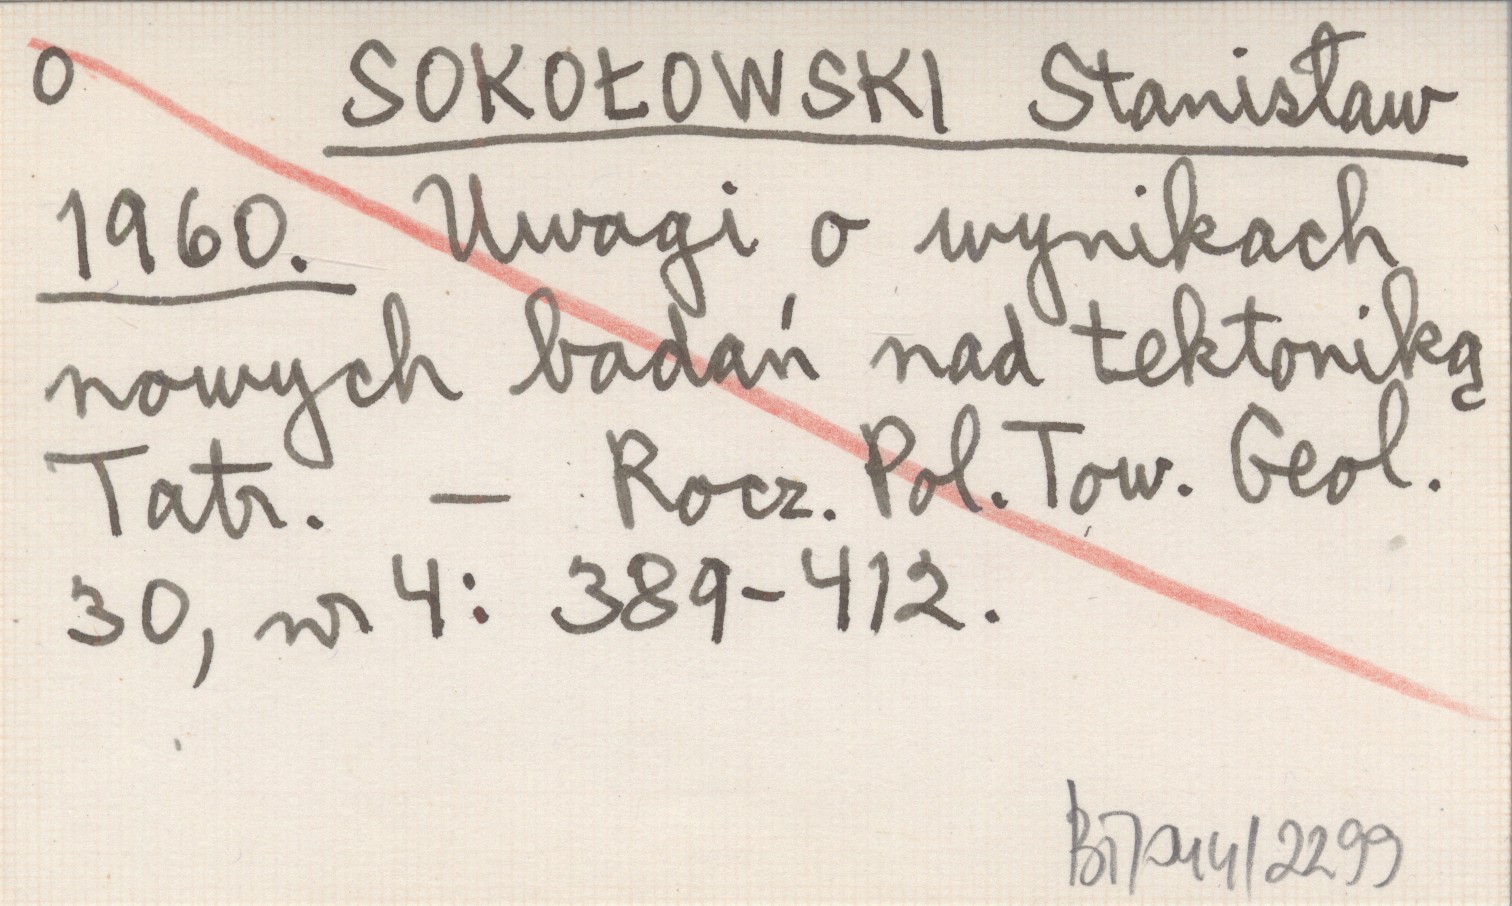 o SOKOŁOWSKI Stanisław
1960. Uwagi o wynikach
nowych badań nad tektoniką
Tatr. — Rocz. Pol. Tow. Geol.
30, nr 4: 389-412.
2299